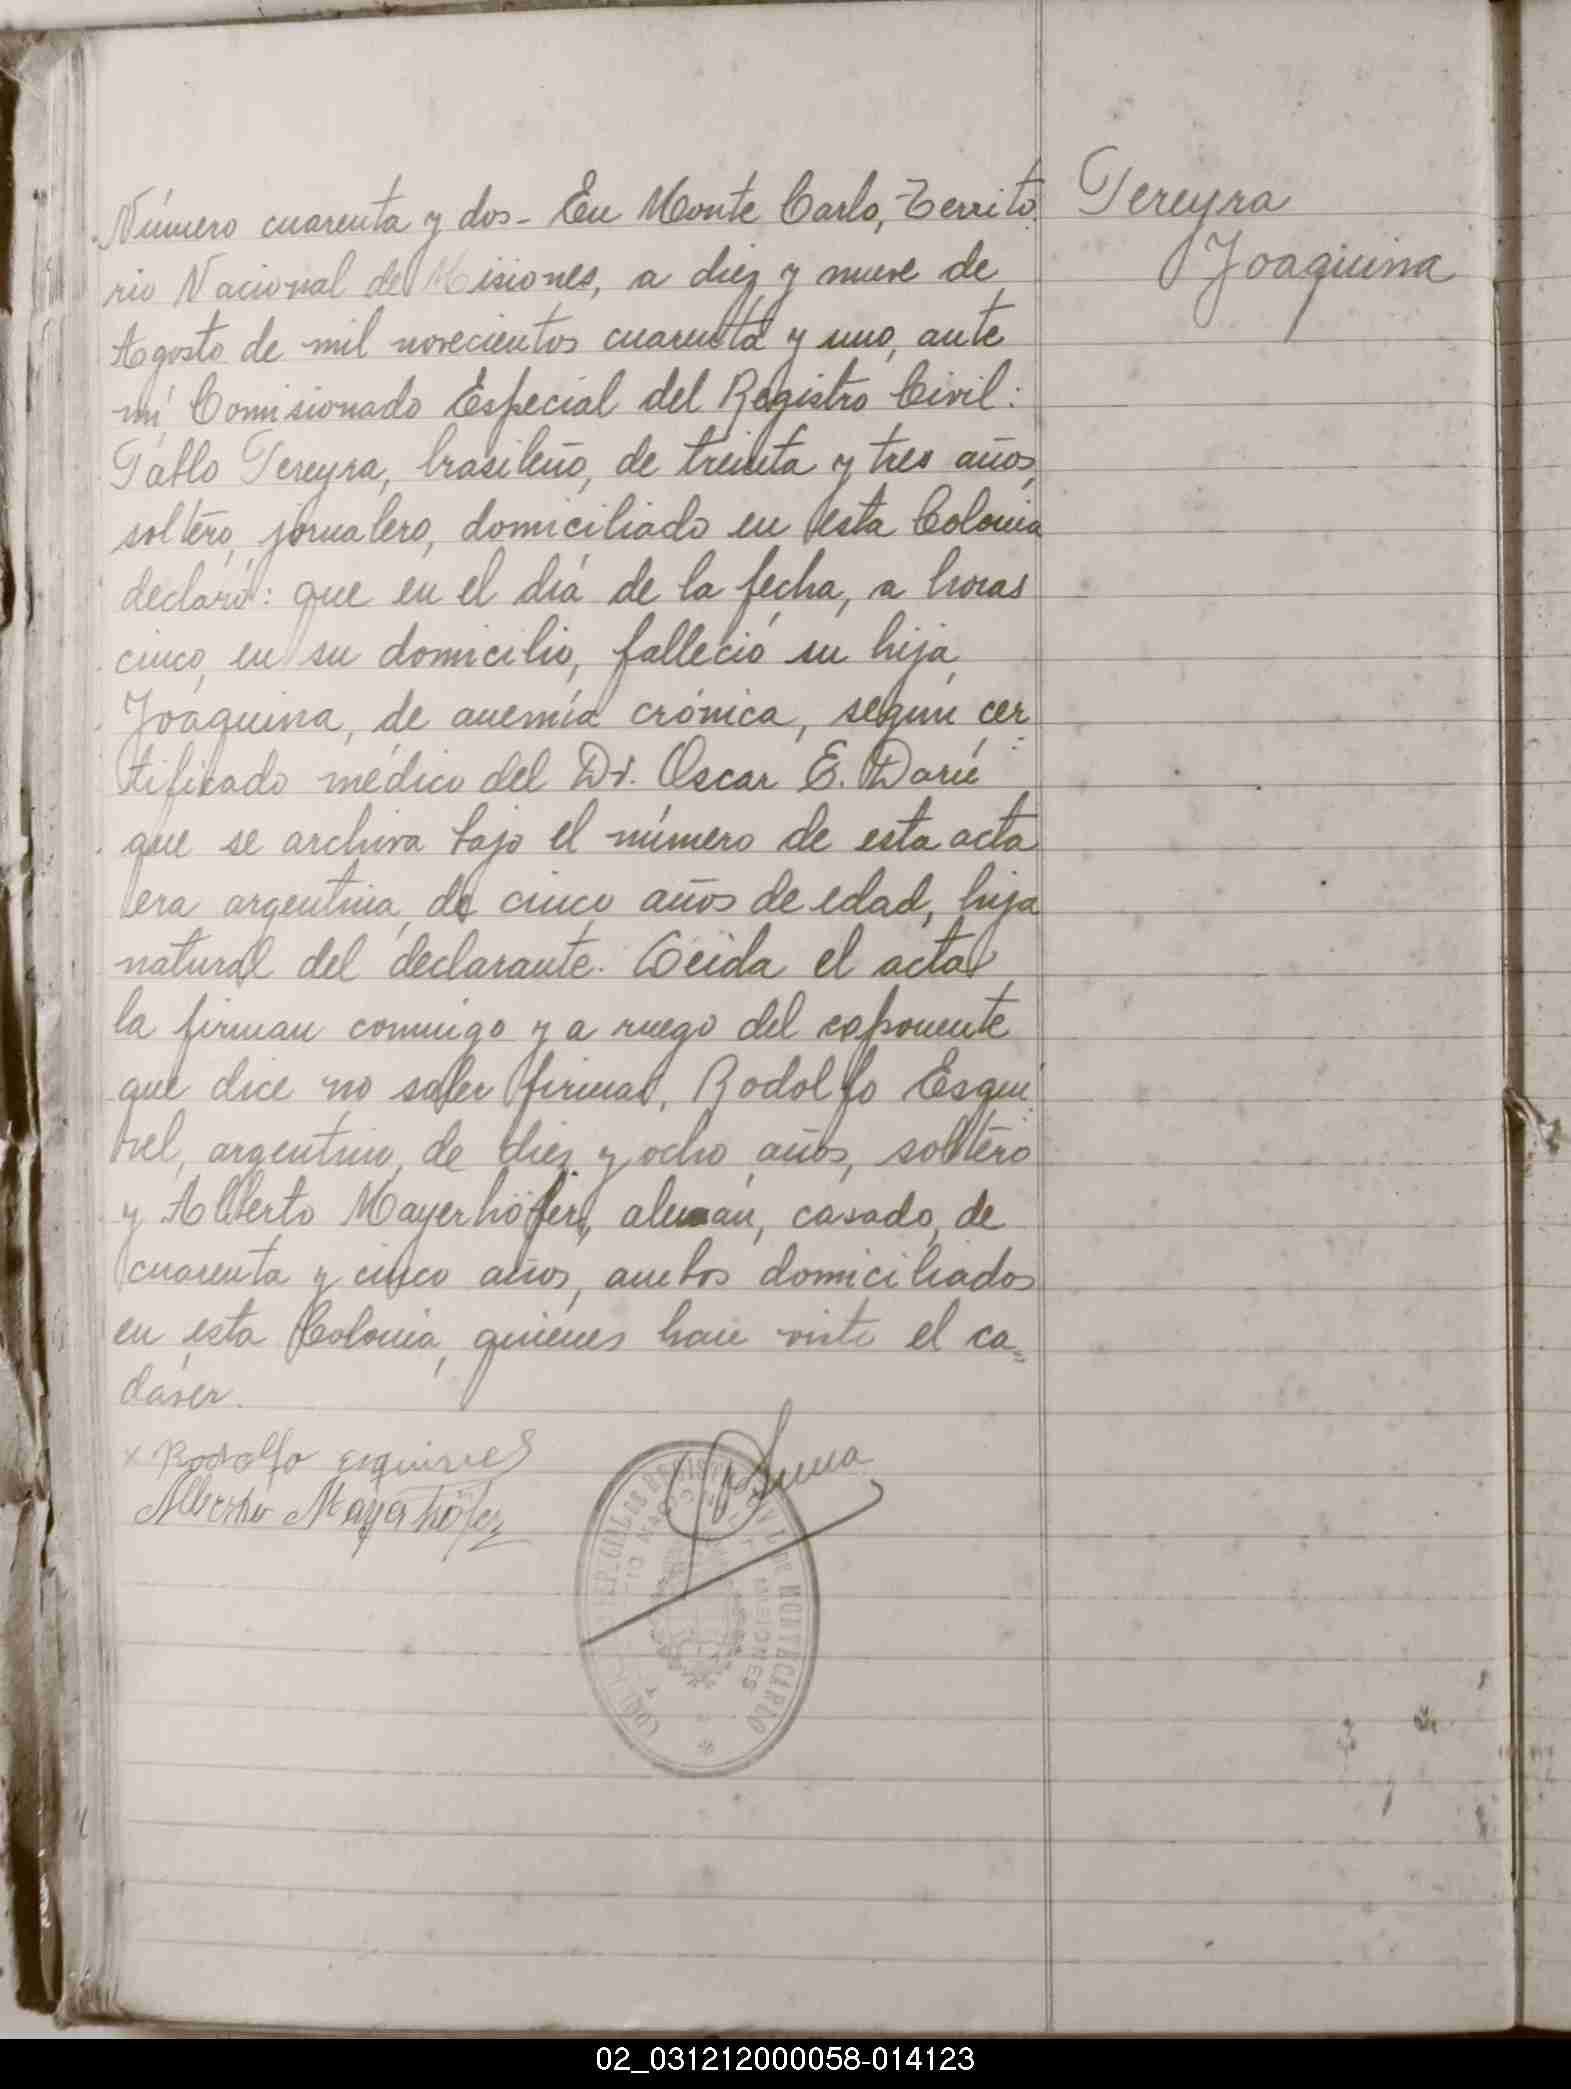 Número cuarenta y dos - En Monte Carlo, Territo
rio Nacional de Misiones, a diez y nueve de
Agosto de mil novecientos cuarenta y uno, ante
mí Comisionado Especial del Registro Civil:
Pablo Pereyra, brasileño, de treinta y tres años,
soltero, jornalero, domiciliado en esta Colonia
declaró: que en el día de la fecha, a horas
cinco, en su domicilio, falleció su hija
Joaquina, de anemia crónica, según cer=
tificado médico del Dr. Oscar E. Darú
que se archiva bajo el número de esta acta
era argentina, de cinco años de edad, hija
natural del declarante. Leida el acta
la firman conmigo y a ruego del exponente
que dice no saber firmar, Rodolfo Esqui
vel, argentino, de diez y ocho años, soltero
y Alberto Mayerhöfer, alemán, casado, de
cuarenta y cinco años, ambos domiciliados
en esta Colonia, quienes han visto el ca=
dáver.
Pereyra
Joaquina
x Rodolfo esquivel
Alberto Mayerhöfer
MONTECARLO
MISIONES
02_031212000058-014123